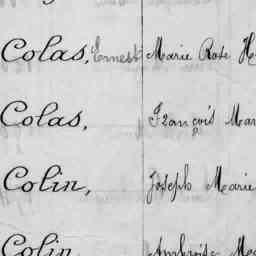 Colas, Ernest Marie Rose H
Colas, François Mar
Colin, Joseph Marie
Colin Ambroise Ma